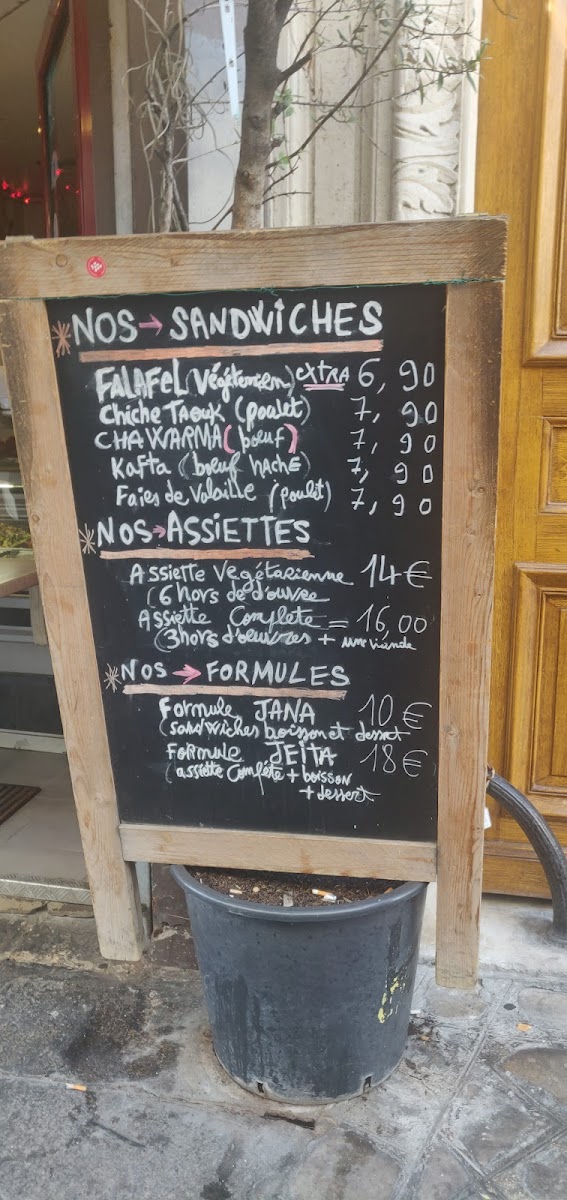 *NOS → SANDWICHES
FALAFEL (Végétarien) extra 6,90
Chiche Taouk (poulet) 7,90
CHAWARMA (boeuf) 7,90
Kafta (boeuf haché) 7,90
Foies de Volaille (poulet) 7,90
*NOS → ASSIETTES
Assiette Végétarienne 14€
(6 hors de d'ouvre
Assiette Complete = 16,00
(3 hors d'oeuvres + une viande
*NOS → FORMULES
Formule JANA 10€
(sandwiches boisson et dessert
Formule JEITA 18€
(assiette Complète + boisson
+ dessert